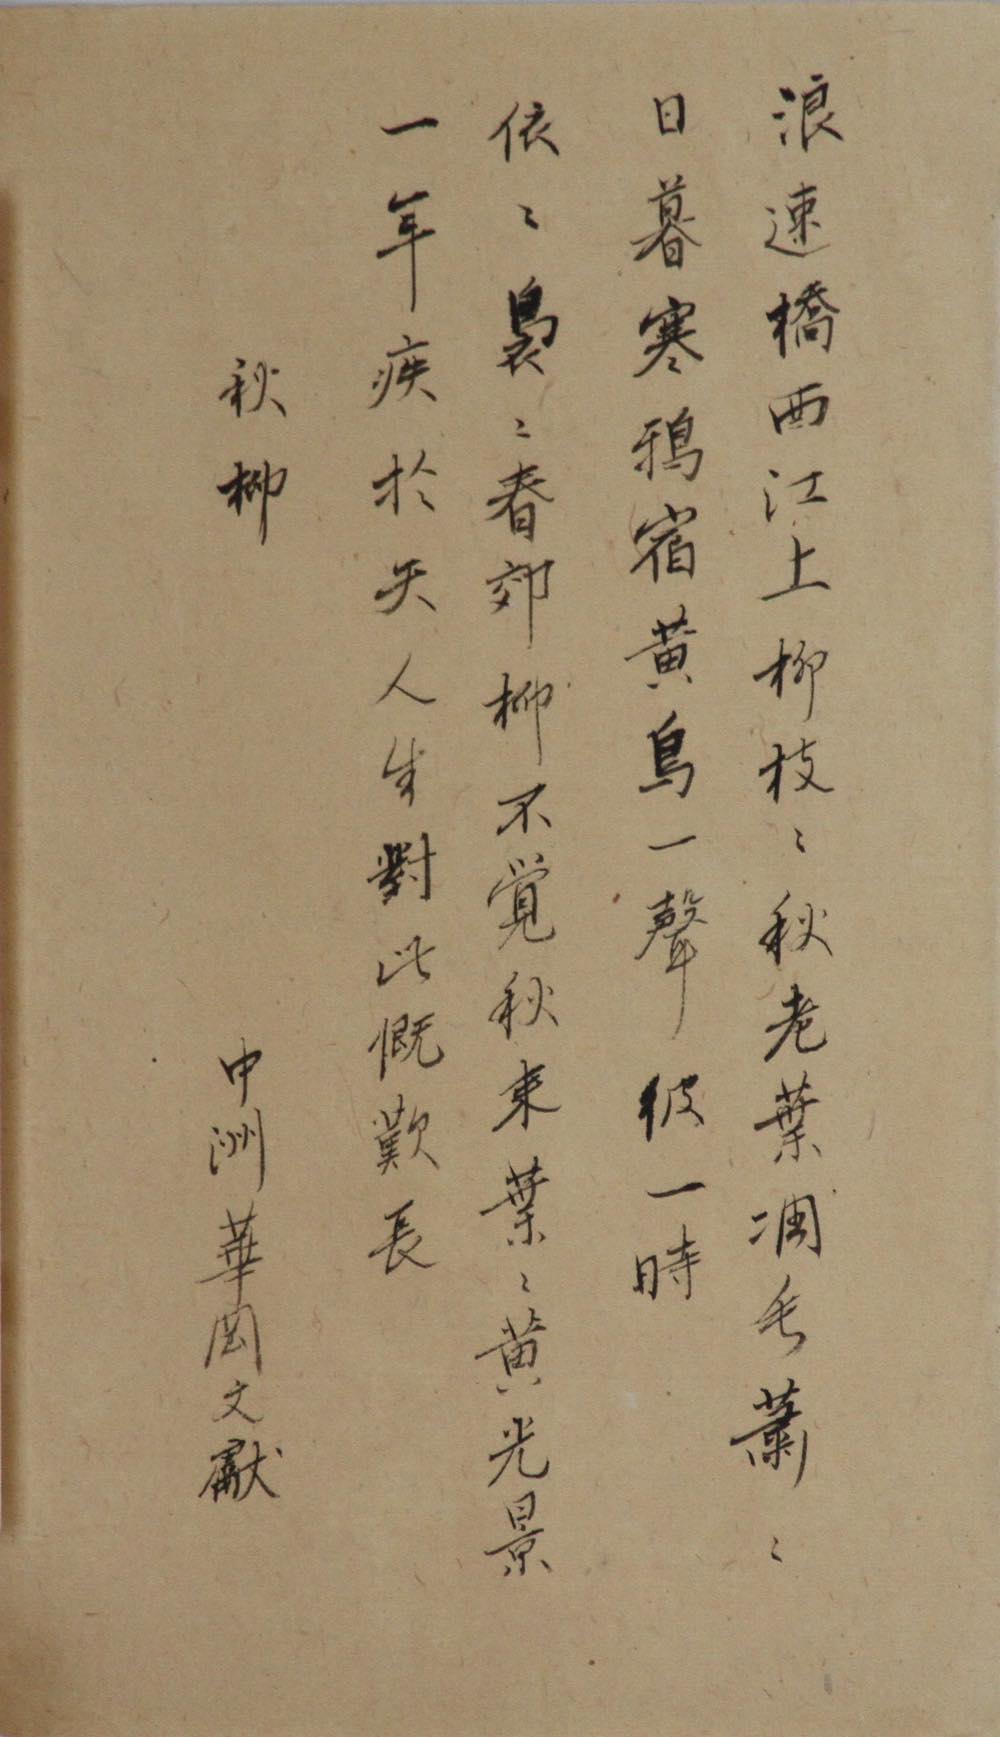 浪速橋西江上柳枝〻秋老葉凋兮蕭〻
日暮寒鴉宿黄鳥一聲彼一時
依〻裊〻春郊柳不覺秋来葉〻黄光景
一年疾於矢人生對此慨歎長
秋柳
中洲華岡文獻